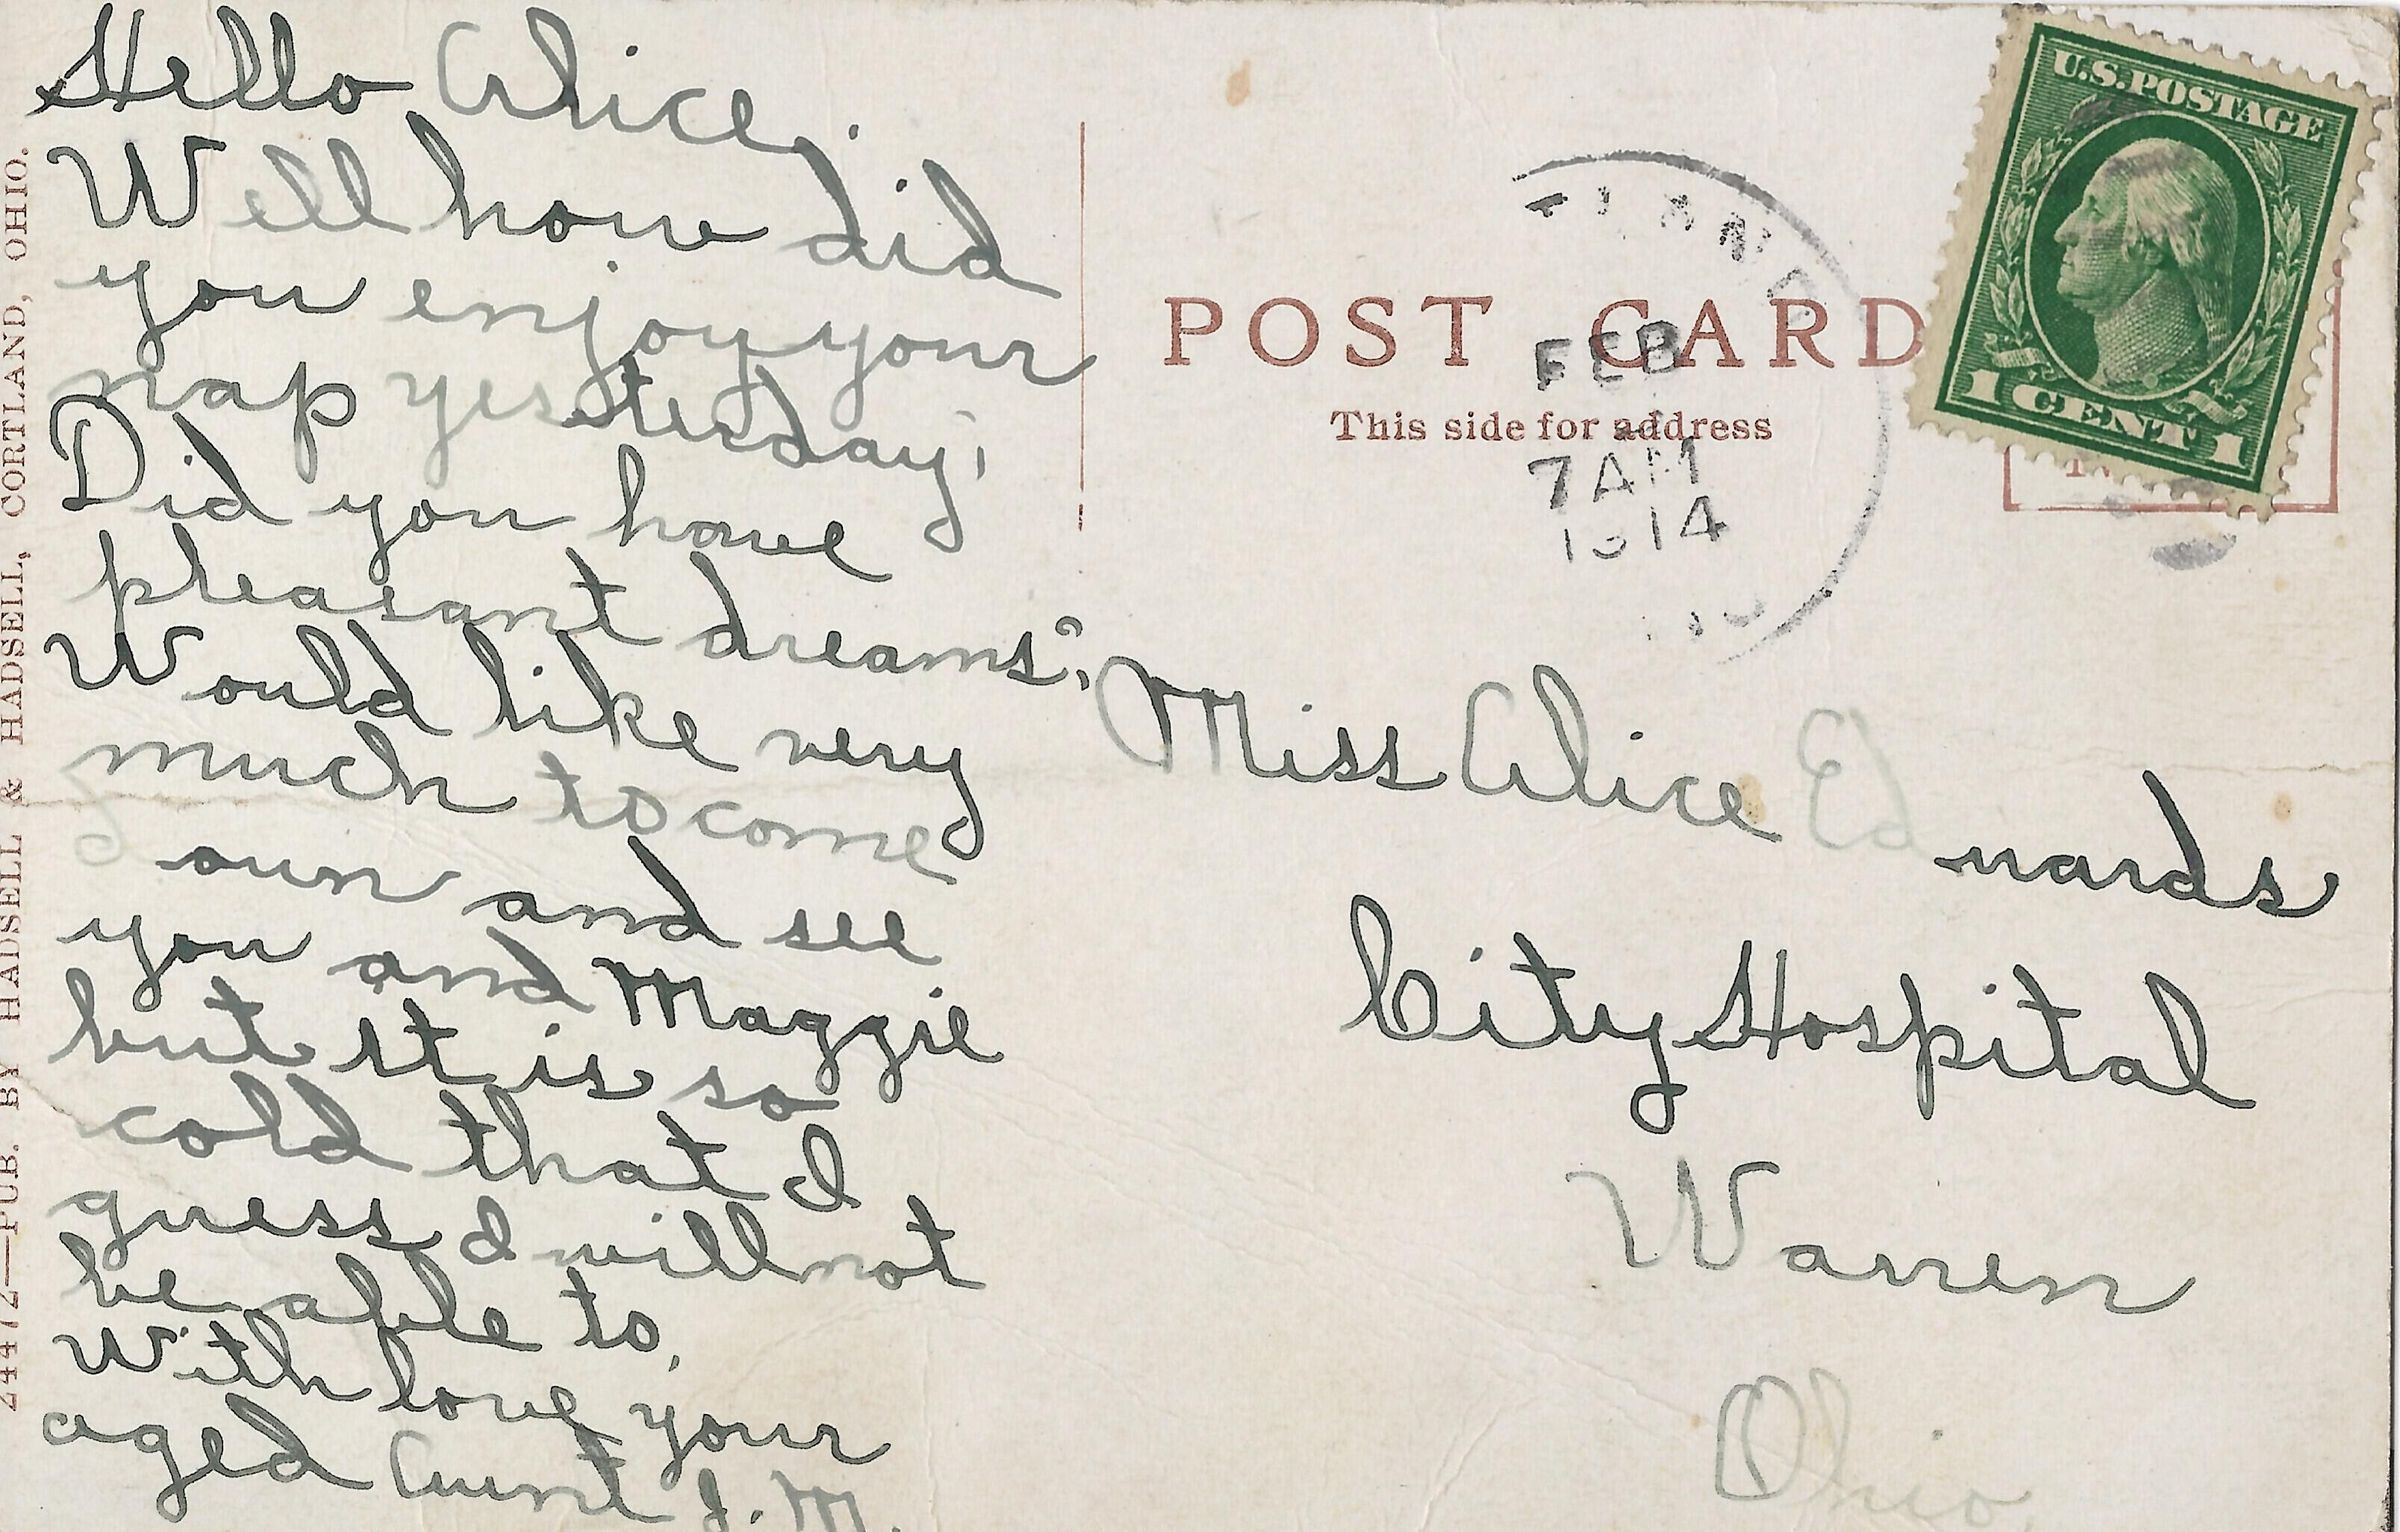 Hello Alice.
Well how did
you enjoy your
nap yesterday;
Did you have
pleasant dreams?,
Would like very
much to come
down and see
you and Maggie
but it is so
cold that I
guess I will not
be able to,
With love your
aged Aunt J. M.
24472—PUB. BY HADSELL & HADSELL, CORTLAND, OHIO.
POST CARD
This side for address
FEB
7 AM
14
U.S. POSTAGE
1 CENT 1
Miss Alice Edwards
City Hospital
Warren
Ohio.